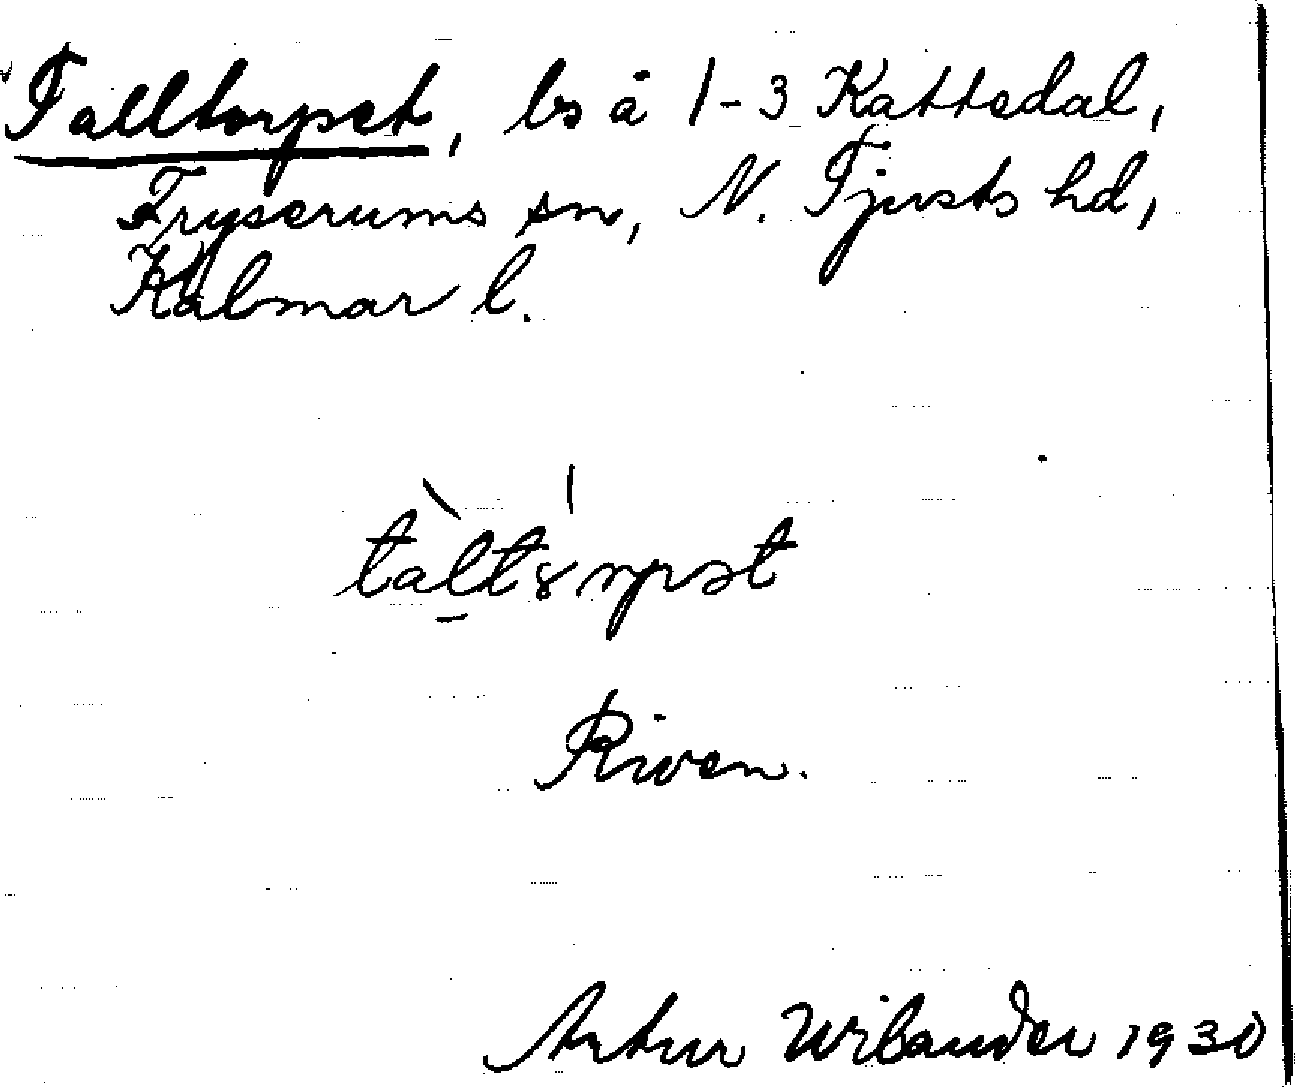 Talltorpet, ls å 1-3 Kattedal,
Tryserums sn, N. Tjusts hd,
Kalmar l.
tàltsǻrpət
Riven.
Artur Wilander 1930